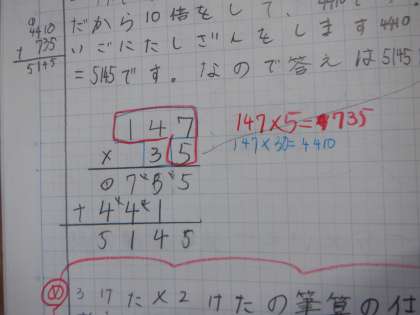 4410
+ 735
5145
だから10倍をして、4410で
いごにたしざんをします4410
=5145です。なので答えは5145
147
× 35
0735
+ 441
5145
147×5=735
147×30=4410
3けた×2けたの筆算の仕